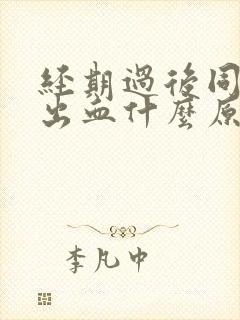 經期過後同
出血什麼原
李凡中